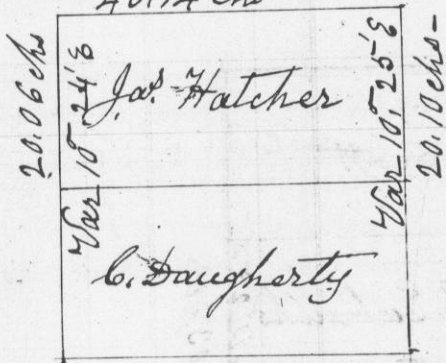 20.06 chs
Var 10° 24' E
Jas. Hatcher
Var 10° 25' E
20.10 chs-
C. Daugherty